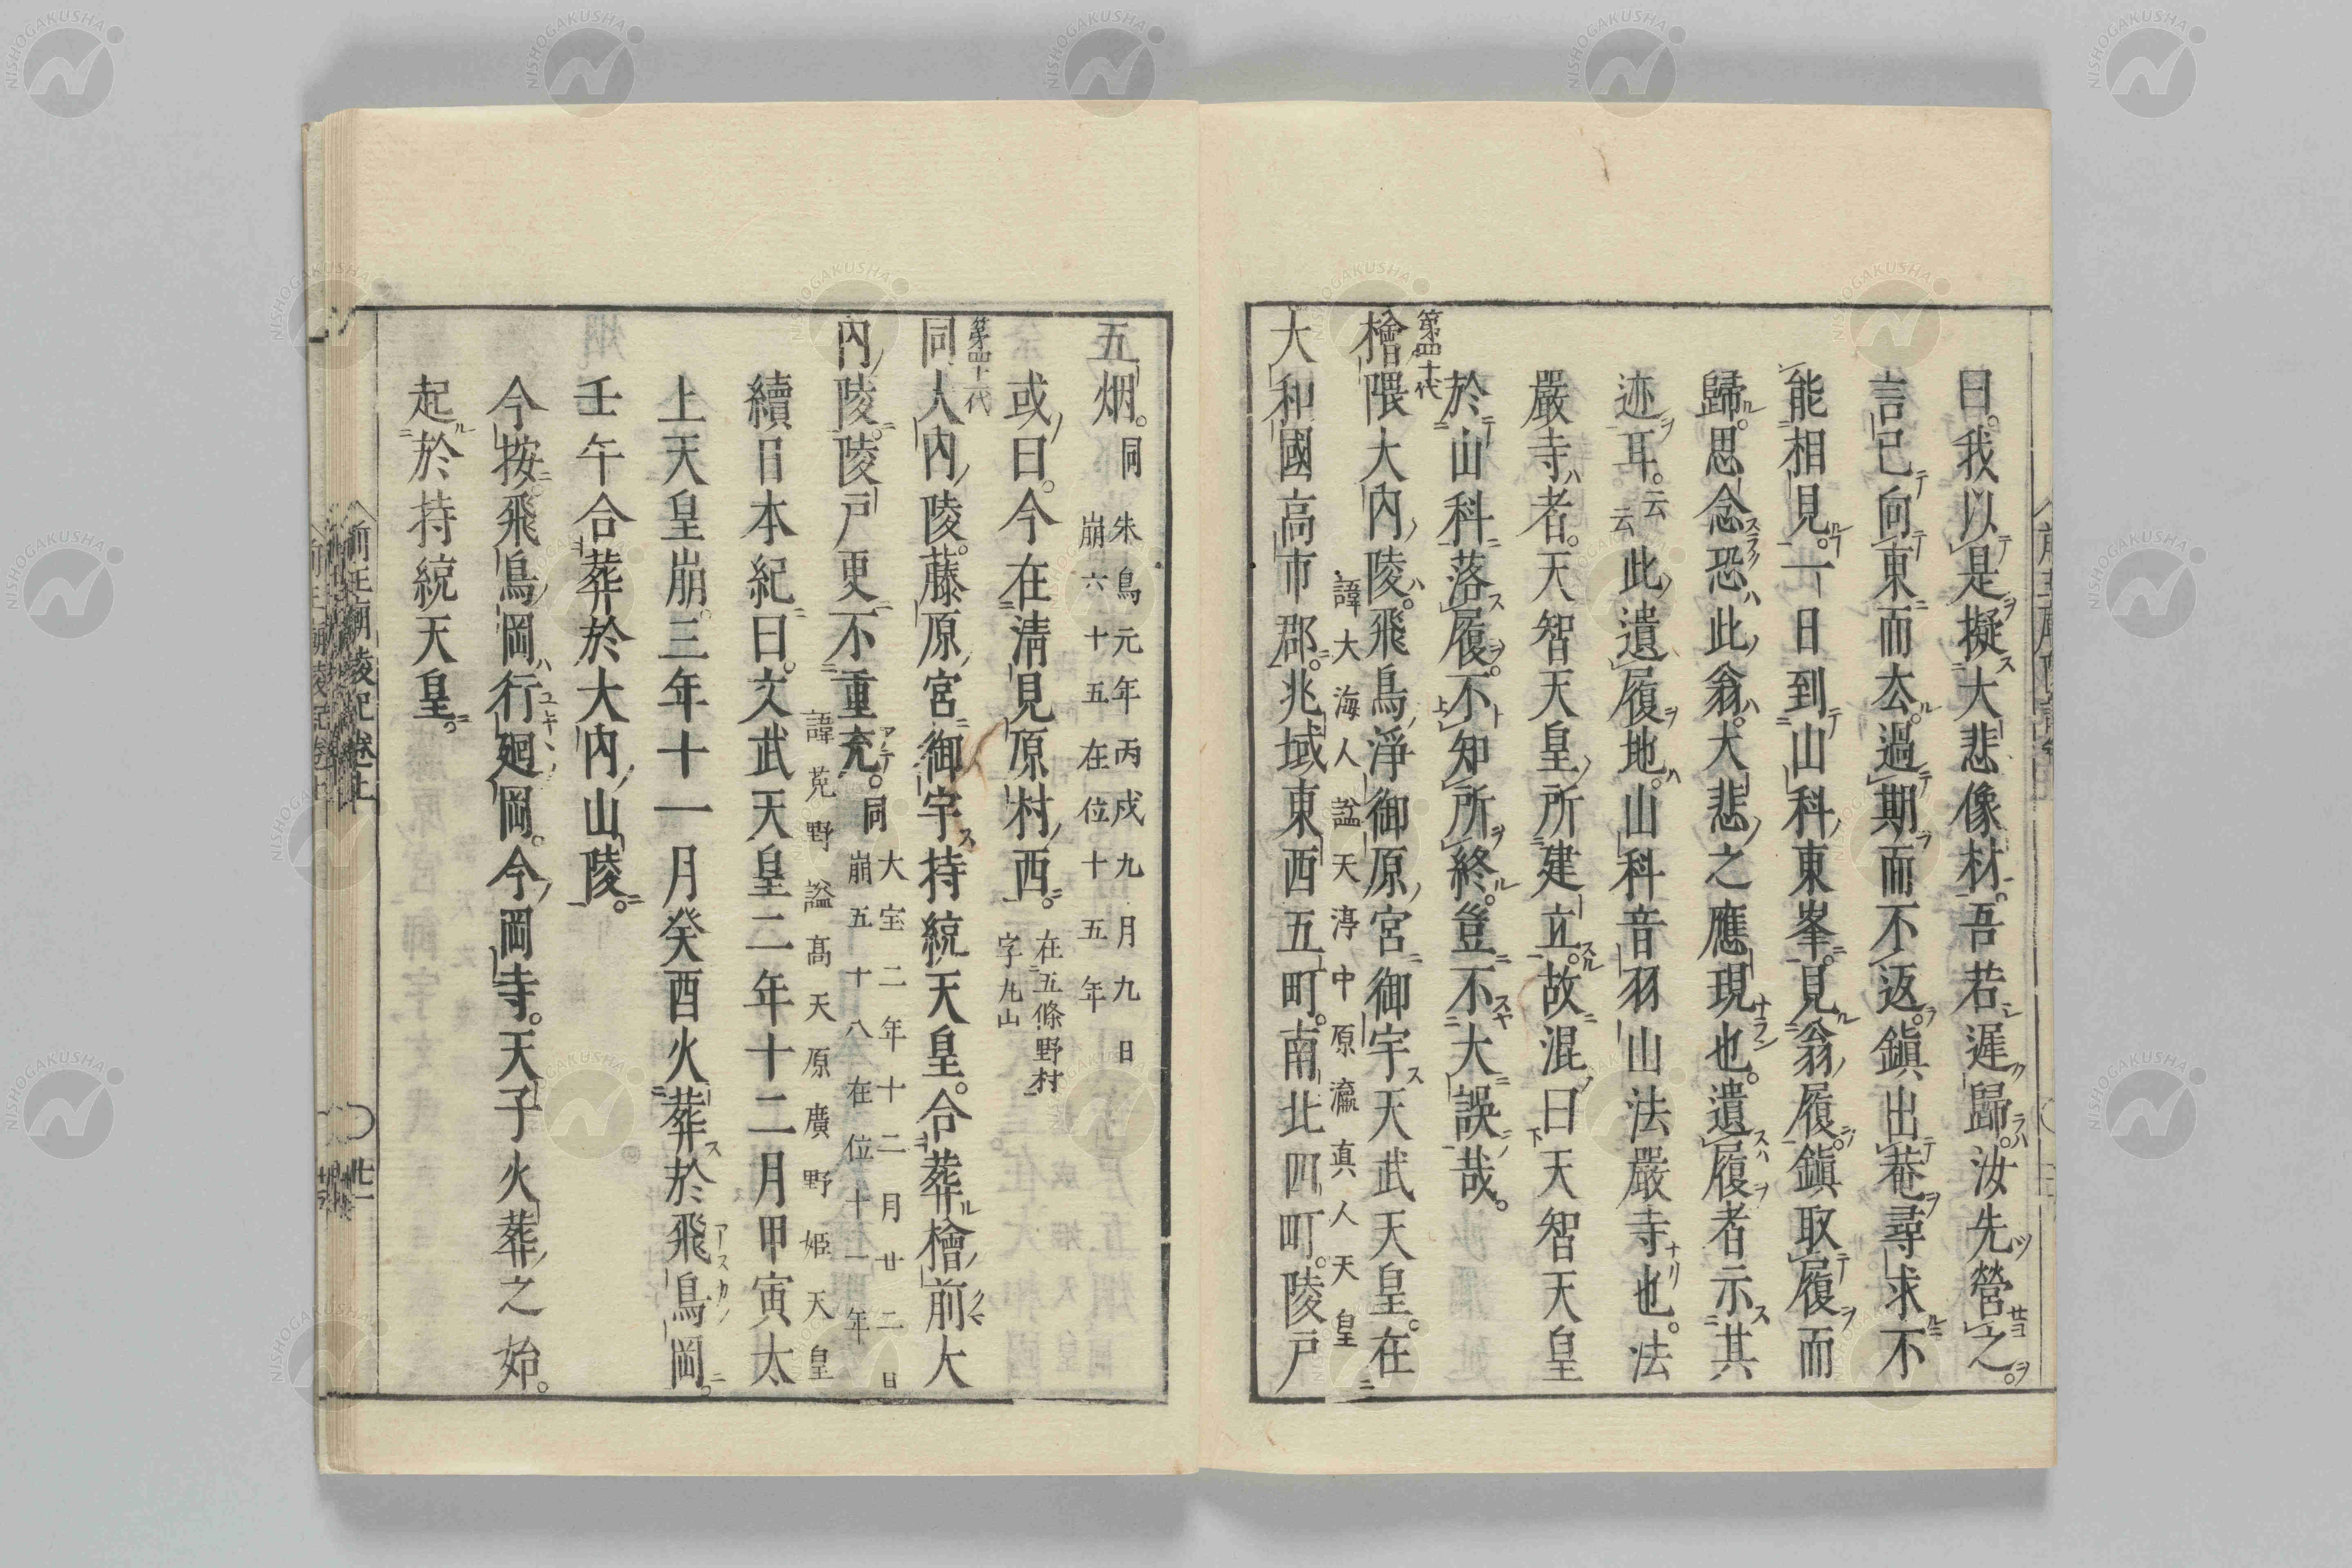 曰。我以是擬大悲像材。吾若遲歸。汝先營之。
言已向東而去。過期而不返。鎭出菴尋求不
能相見。一日到山科東峯。見翁履。鎭取履而
歸。思念恐此翁。大悲之應現也。遺履者示其
迹耳。云云此遺履地。山科音羽山法嚴寺也。法
嚴寺者。天智天皇所建立。故混曰天智天皇
於山科落履。不知所終。豈不大誤哉。
第四十代
檜隈大內陵。飛鳥淨御原宮御宇天武天皇。在
諱大海人諡天渟中原瀛真人天皇
大和國高市郡。兆域東西五町。南北四町。陵戸
五烟。同
朱鳥元年丙戌九月九日
崩六十五在位十五年
或曰。今在淸見原村西。
在五條野村
字丸山
第四十一代
同大內陵。藤原宮御宇持統天皇。合葬檜前大
內陵。陵戸更不重充。同
大宝二年十二月廿二日
崩五十八在位十一年
諱菟野諡高天原廣野姫天皇
續日本紀曰。文武天皇二年十二月甲寅太
上天皇崩。三年十一月癸酉火葬於飛鳥岡。
壬午合葬於大內山陵。
今按飛鳥岡行廻岡。今岡寺。天子火葬之始。
起於持統天皇。
前王廟陵記卷上
廿一
NISHOGAKUSHA